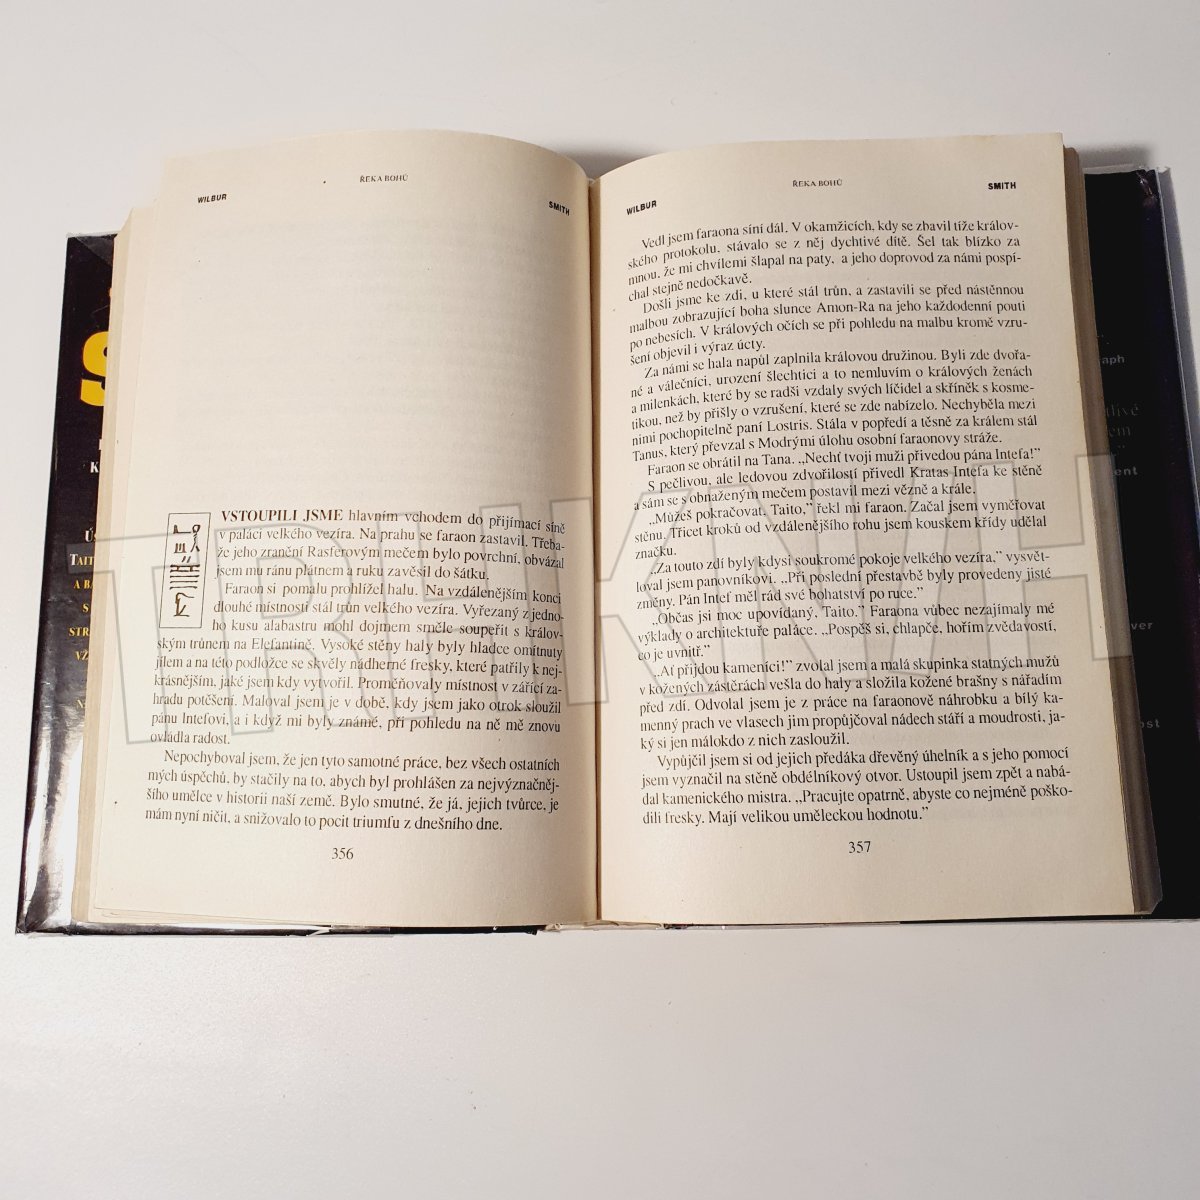 ŘEKA BOHŮ
WILBUR
SMITH
VSTOUPILI JSME hlavním vchodem do přijímací síně
v paláci velkého vezíra. Na prahu se faraon zastavil. Třeba-
že jeho zranění Rasferovým mečem bylo povrchní, obvázal
jsem mu ránu plátnem a ruku zavěsil do šátku.
Faraon si pomalu prohlížel halu. Na vzdálenějším konci
dlouhé místnosti stál trůn velkého vezíra. Vyřezaný z jedno-
ho kusu alabastru mohl dojmem směle soupeřit s králov-
ským trůnem na Elefantině. Vysoké stěny haly byly hladce omítnuty
jílem a na této podložce se skvěly nádherné fresky, které patřily k nej-
krásnějším, jaké jsem kdy vytvořil. Proměňovaly místnost v zářící za-
hradu potěšení. Maloval jsem je v době, kdy jsem jako otrok sloužil
pánu Intefovi, a i když mi byly známé, při pohledu na ně mě znovu
ovládla radost.
Nepochyboval jsem, že jen tyto samotné práce, bez všech ostatních
mých úspěchů, by stačily na to, abych byl prohlášen za nejvýznačněj-
šího umělce v historii naší země. Bylo smutné, že já, jejich tvůrce, je
mám nyní ničit, a snižovalo to pocit triumfu z dnešního dne.
356
ŘEKA BOHŮ
WILBUR
SMITH
Vedl jsem faraona síní dál. V okamžicích, kdy se zbavil tíže králov-
ského protokolu, stávalo se z něj dychtivé dítě. Šel tak blízko za
mnou, že mi chvílemi šlapal na paty, a jeho doprovod za námi pospí-
chal stejně nedočkavě.
Došli jsme ke zdi, u které stál trůn, a zastavili se před nástěnnou
malbou zobrazující boha slunce Amon-Ra na jeho každodenní pouti
po nebesích. V králových očích se při pohledu na malbu kromě vzru-
šení objevil i výraz úcty.
Za námi se hala napůl zaplnila královou družinou. Byli zde dvořa-
né a válečníci, urození šlechtici a to nemluvím o králových ženách
a milenkách, které by se radši vzdaly svých líčidel a skříněk s kosme-
tikou, než by přišly o vzrušení, které se zde nabízelo. Nechyběla mezi
nimi pochopitelně paní Lostris. Stála v popředí a těsně za králem stál
Tanus, který převzal s Modrými úlohu osobní faraonovy stráže.
Faraon se obrátil na Tana. „Nechť tvoji muži přivedou pána Intefa!”
S pečlivou, ale ledovou zdvořilostí přivedl Kratas Intefa ke stěně
a sám se s obnaženým mečem postavil mezi vězně a krále.
„Můžeš pokračovat, Taito,” řekl mi faraon. Začal jsem vyměřovat
stěnu. Třicet kroků od vzdálenějšího rohu jsem kouskem křídy udělal
značku.
„Za touto zdí byly kdysi soukromé pokoje velkého vezíra,” vysvět-
loval jsem panovníkovi. „Při poslední přestavbě byly provedeny jisté
změny. Pán Intef měl rád své bohatství po ruce.”
„Občas jsi moc upovídaný, Taito.” Faraona vůbec nezajímaly mé
výklady o architektuře paláce. „Pospěš si, chlapče, hořím zvědavostí,
co je uvnitř.”
„Ať přijdou kameníci!” zvolal jsem a malá skupinka statných mužů
v kožených zástěrách vešla do haly a složila kožené brašny s nářadím
před zdí. Odvolal jsem je z práce na faraonově náhrobku a bílý ka-
menný prach ve vlasech jim propůjčoval nádech stáří a moudrosti, ja-
ký si jen málokdo z nich zasloužil.
Vypůjčil jsem si od jejich předáka dřevěný úhelník a s jeho pomocí
jsem vyznačil na stěně obdélníkový otvor. Ustoupil jsem zpět a nabá-
dal kamenického mistra. „Pracujte opatrně, abyste co nejméně poško-
dili fresky. Mají velikou uměleckou hodnotu.”
357
TRHKNIH